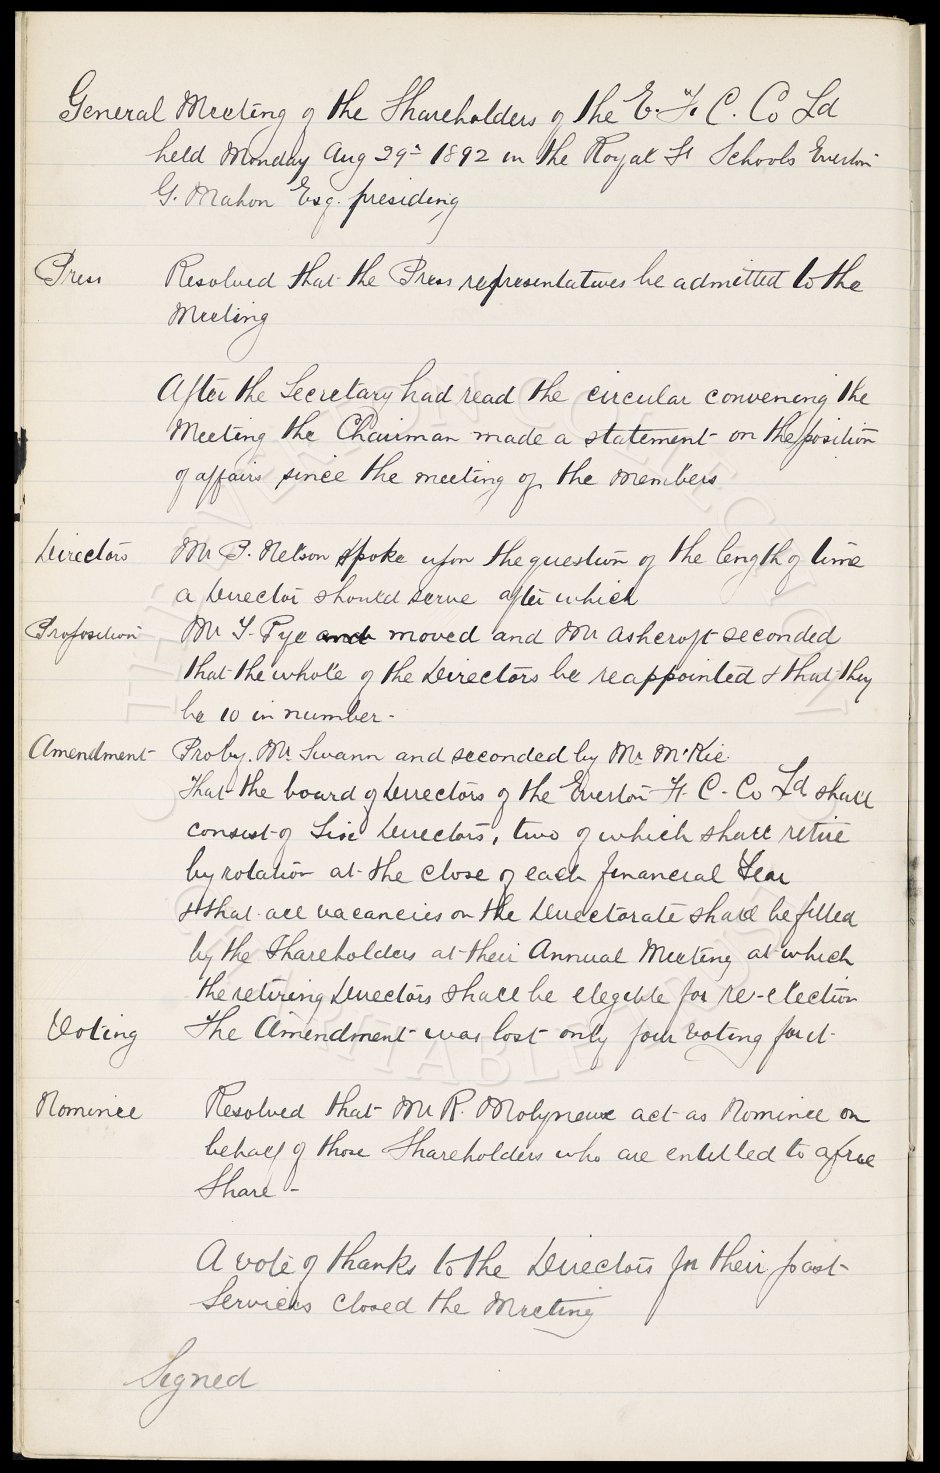 General Meeting of the Shareholders of the E. F. C. Co Ld
held Monday Aug 29th 1892 in the Royal St Schools Everton
G. Mahon Esq. presiding
Press Resolved that the Press representatives be admitted to the
Meeting
After the Secretary had read the circular convening the
Meeting the Chairman made a statement on the position
of affairs since the meeting of the Members
Directors Mr P. Nelson spoke upon the question of the length of time
a Director should serve after which
Proposition Mr T. Pye and moved and Mr Ashcroft seconded
that the whole of the Directors be reappointed & that they
be 10 in number -
Amendment Pro by. Mr. Swann and seconded by Mr. McKie.
That the board of Directors of the Everton F. C. Co Ld. shall
consist of Six Directors, two of which shall retire
by rotation at the close of each financial Year
& that all vacancies on the Directorate shall be filled
by the Shareholders at their Annual Meeting at which
the retiring Directors shall be elegible for re-election
Voting The Amendment was lost only four voting for it.
Nominee Resolved that Mr R. Molyneux act as Nominee on
behalf of those Shareholders who are entitled to a free
Share -
A vote of thanks to the Directors for their past
Services closed the Meeting
Signed
THE EVERTON COLLECTION
CHARITABLE TRUST